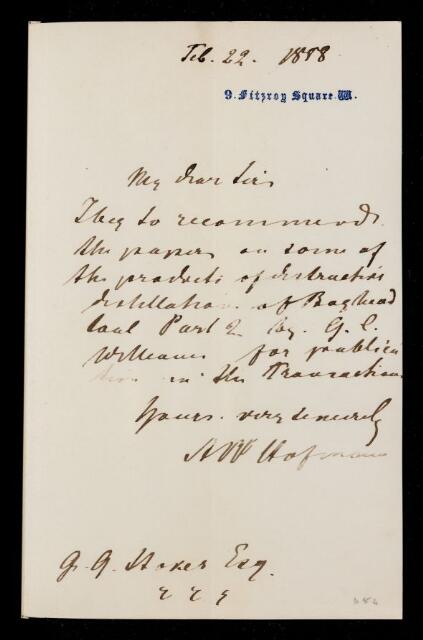 Feb. 22. 1858
9. Fitzroy Square. W.
My dear Sir,
I beg to recommend
the paper on some of
the products of destructive
distillation of Boghead
Coal Part 2 by G. C.
Williams for publica
tion in the Transactions
Yours very sincerely
A W Hofmann
G. G. Stokes Esq.